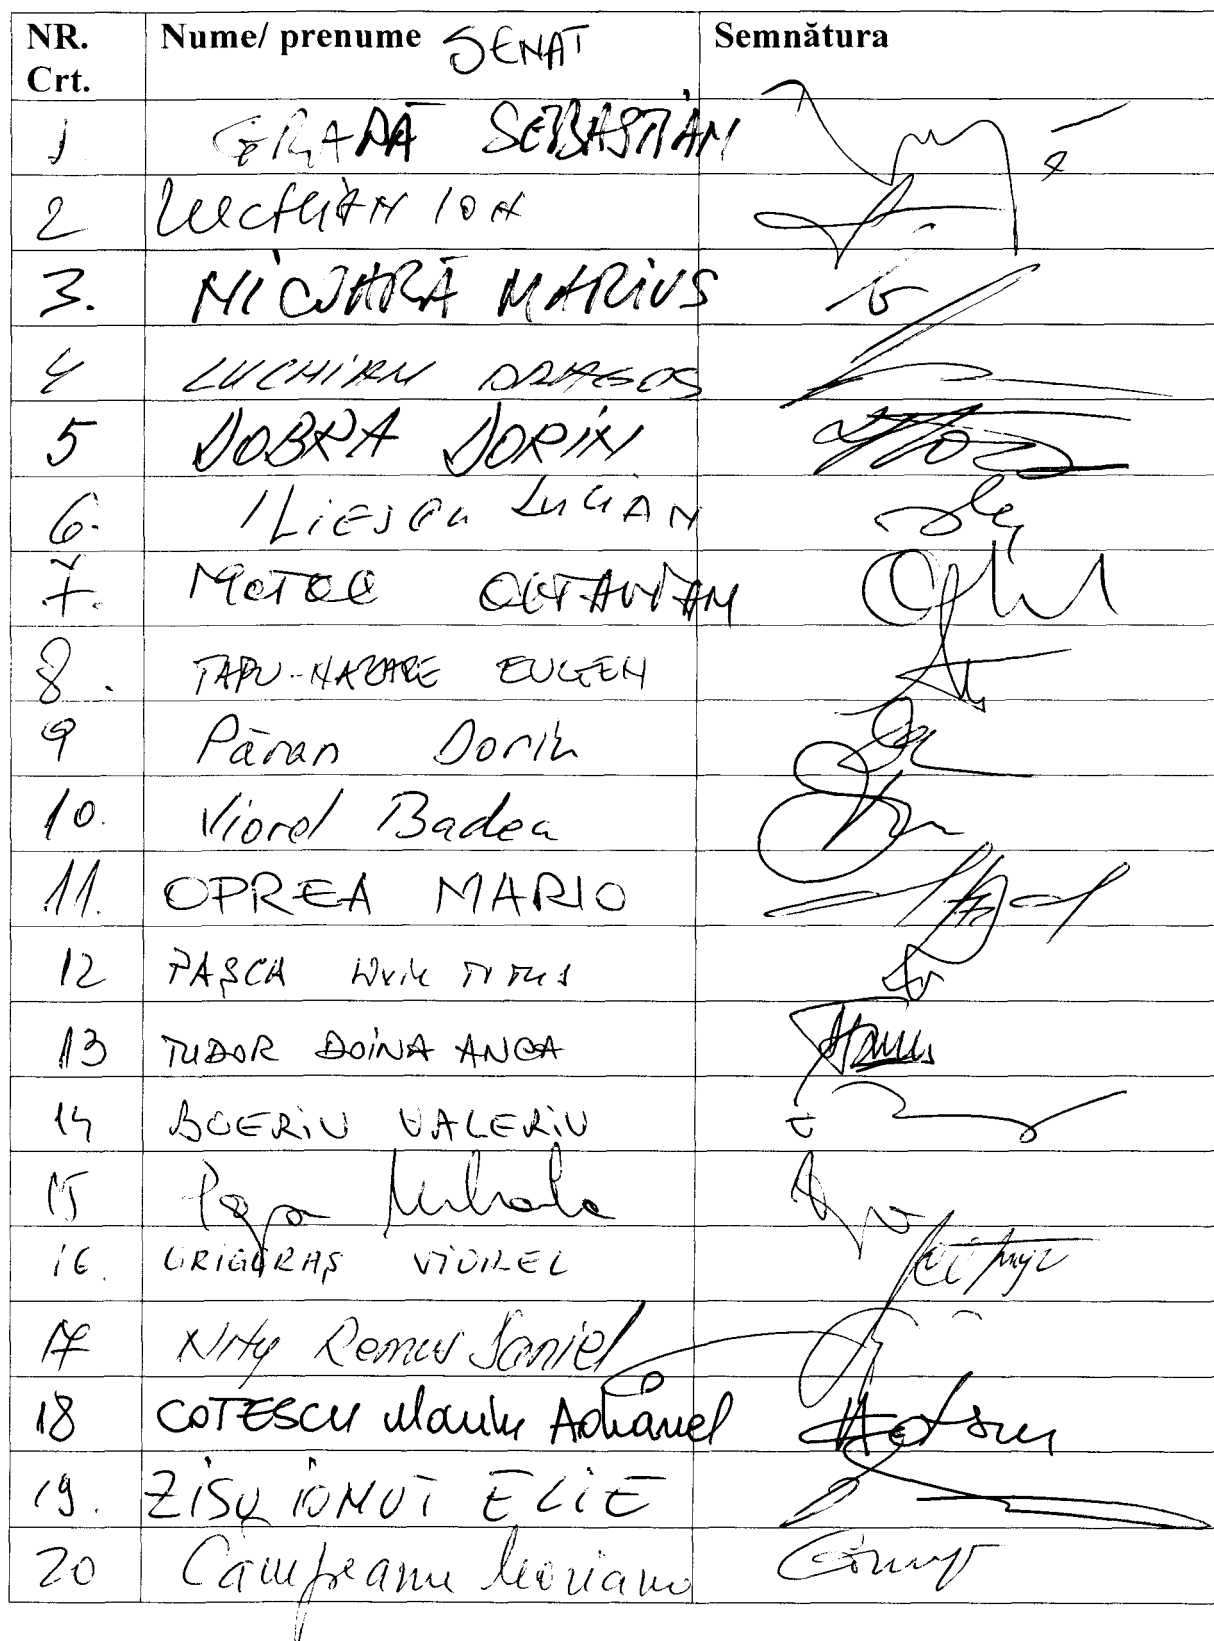 NR. Crt. Nume/ prenume SENAT Semnătura
1 GRAPĂ SEBASTIAN
2 LUCHIAN ION
3. NICOARĂ MARIUS
4 LUCHIAN DRAGOS
5 DOBRA DORIN
6. ILIESCU LUCIAN
7. MOTOC OCTAVIAN
8. TAPU-NAZARE EUGEN
9 Păran Dorin
10. Viorel Badea
11. OPREA MARIO
12 PAȘCA LIVIU TITUS
13 TUDOR DOINA ANCA
14 BOERIU VALERIU
15 Popa Mihaela
16. GRIGORAȘ VIOREL
17 Remus Daniel
18 COTESCU Marin Adrianel
19. ZISU IONUT ELIE
20 Campeanu Mariana